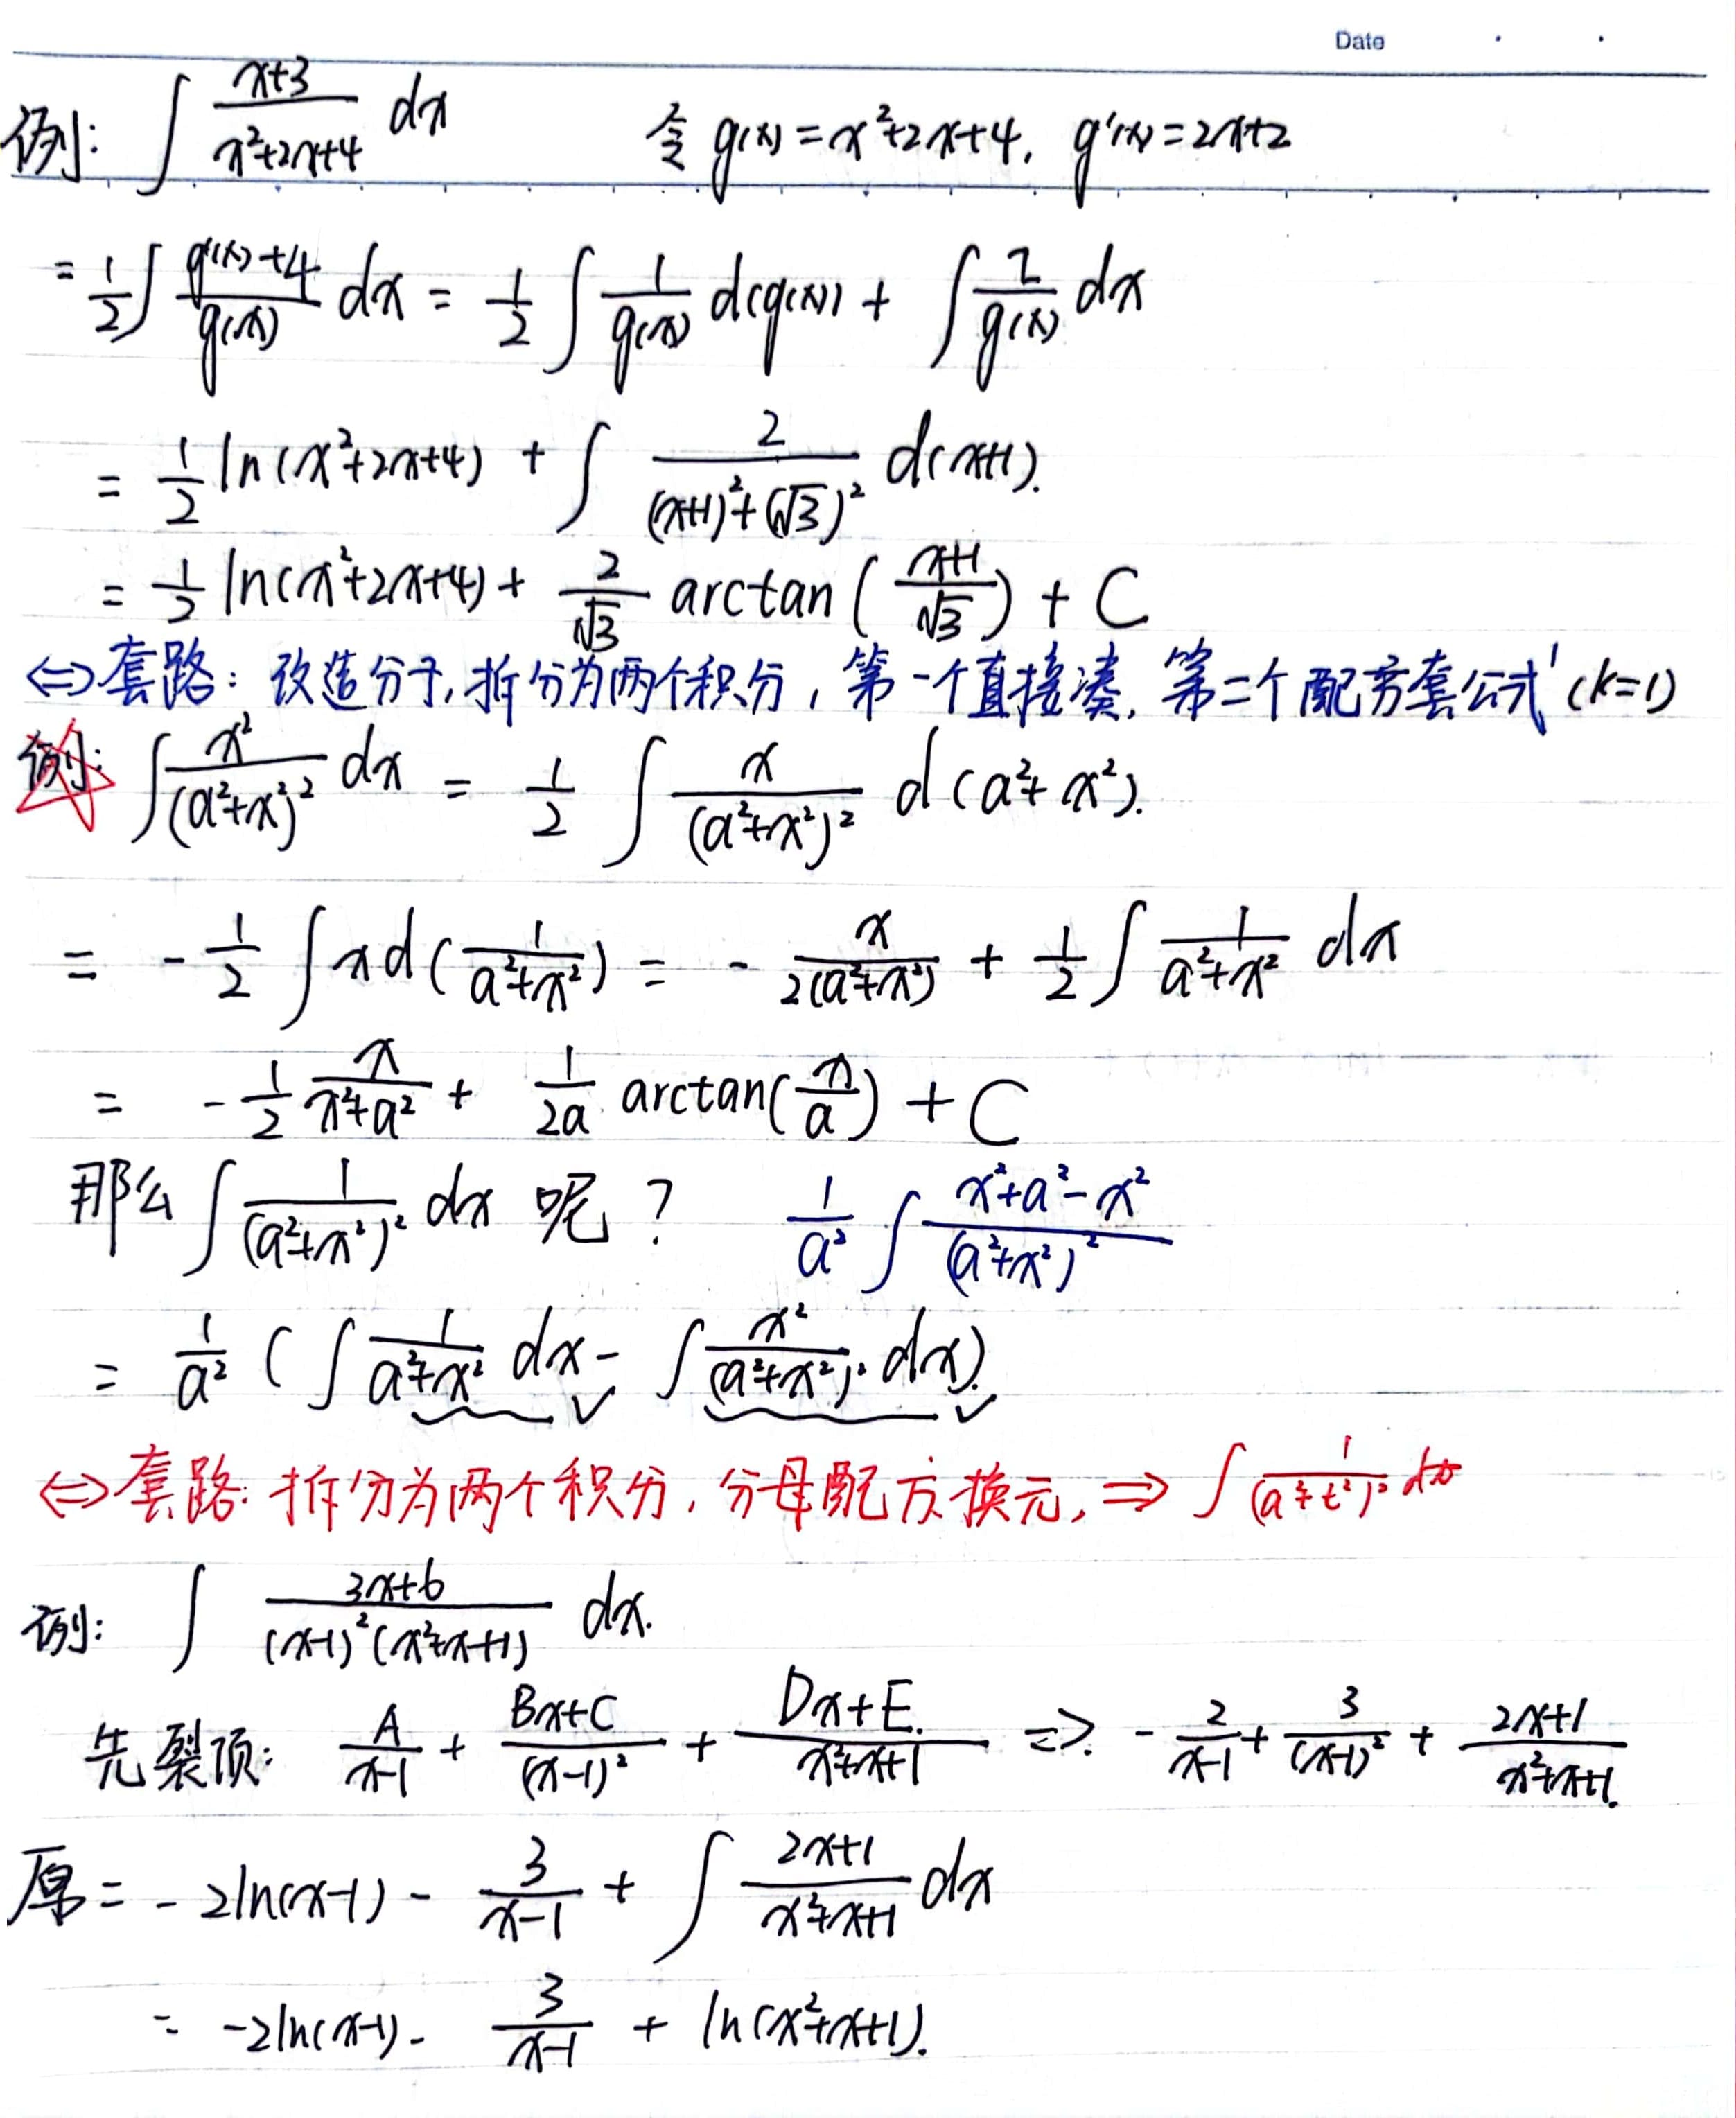 Date
例: ∫ (x+3)/(x²+2x+4) dx 令 g(x)=x²+2x+4, g'(x)=2x+2
= 1/2 ∫ (g'(x)+4)/g(x) dx = 1/2 ∫ 1/g(x) d(g(x)) + ∫ 2/g(x) dx
= 1/2 ln(x²+2x+4) + ∫ 2/((x+1)²+(√3)²) d(x+1).
= 1/2 ln(x²+2x+4) + 2/√3 arctan((x+1)/√3) + C
⇔ 套路: 改造分子, 拆分为两个积分, 第一个直接凑, 第二个配方套公式 (k=1)
例: ∫ x²/(a²+x²)² dx = 1/2 ∫ x/(a²+x²)² d(a²+x²).
= -1/2 ∫ x d(1/(a²+x²)) = - x/(2(a²+x²)) + 1/2 ∫ 1/(a²+x²) dx
= -1/2 x/(x²+a²) + 1/(2a) arctan(x/a) + C
那么 ∫ 1/(a²+x²)² dx 呢? 1/a² ∫ (x²+a²-x²)/(a²+x²)²
= 1/a² (∫ 1/(a²+x²) dx - ∫ x²/(a²+x²)² dx). ✓ ✓
⇔ 套路: 拆分为两个积分, 分母配方换元, ⇒ ∫ 1/(a²+t²)² dt
例: ∫ (3x+6)/((x-1)²(x²+x+1)) dx.
先裂项: A/(x-1) + (Bx+C)/(x-1)² + (Dx+E)/(x²+x+1) ⇒ -2/(x-1) + 3/(x-1)² + (2x+1)/(x²+x+1)
原 = -2ln(x-1) - 3/(x-1) + ∫ (2x+1)/(x²+x+1) dx
= -2ln(x-1) - 3/(x-1) + ln(x²+x+1).